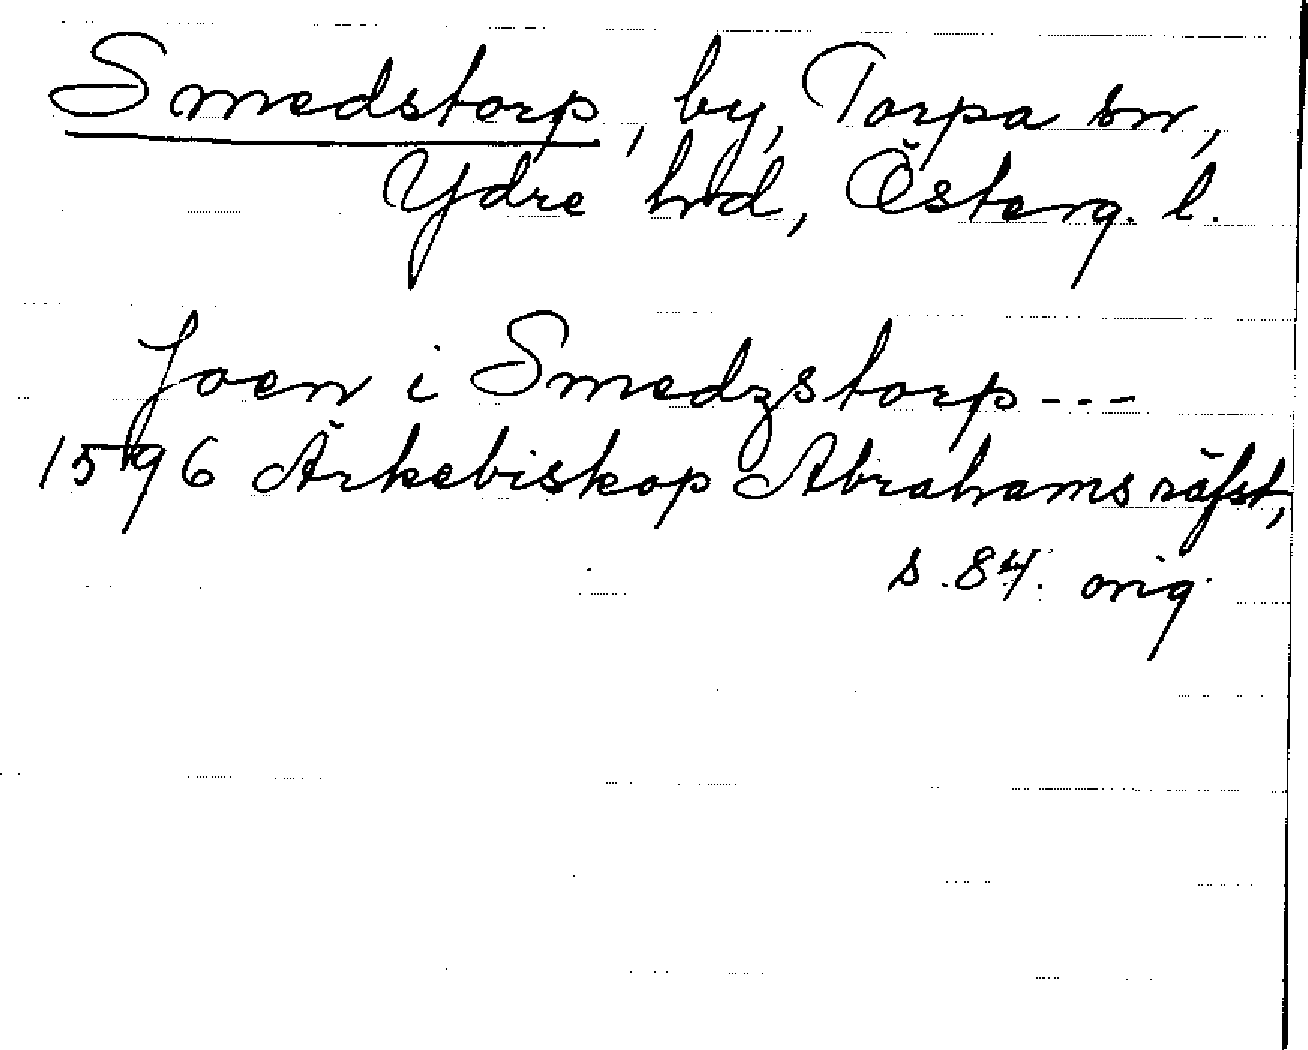 Smedstorp, by, Torpa sn,
Ydre hrd, Österg. l.
Joen i Smedzstorp---
1596 Ärkebiskop Abrahams räfst,
s. 84. orig.